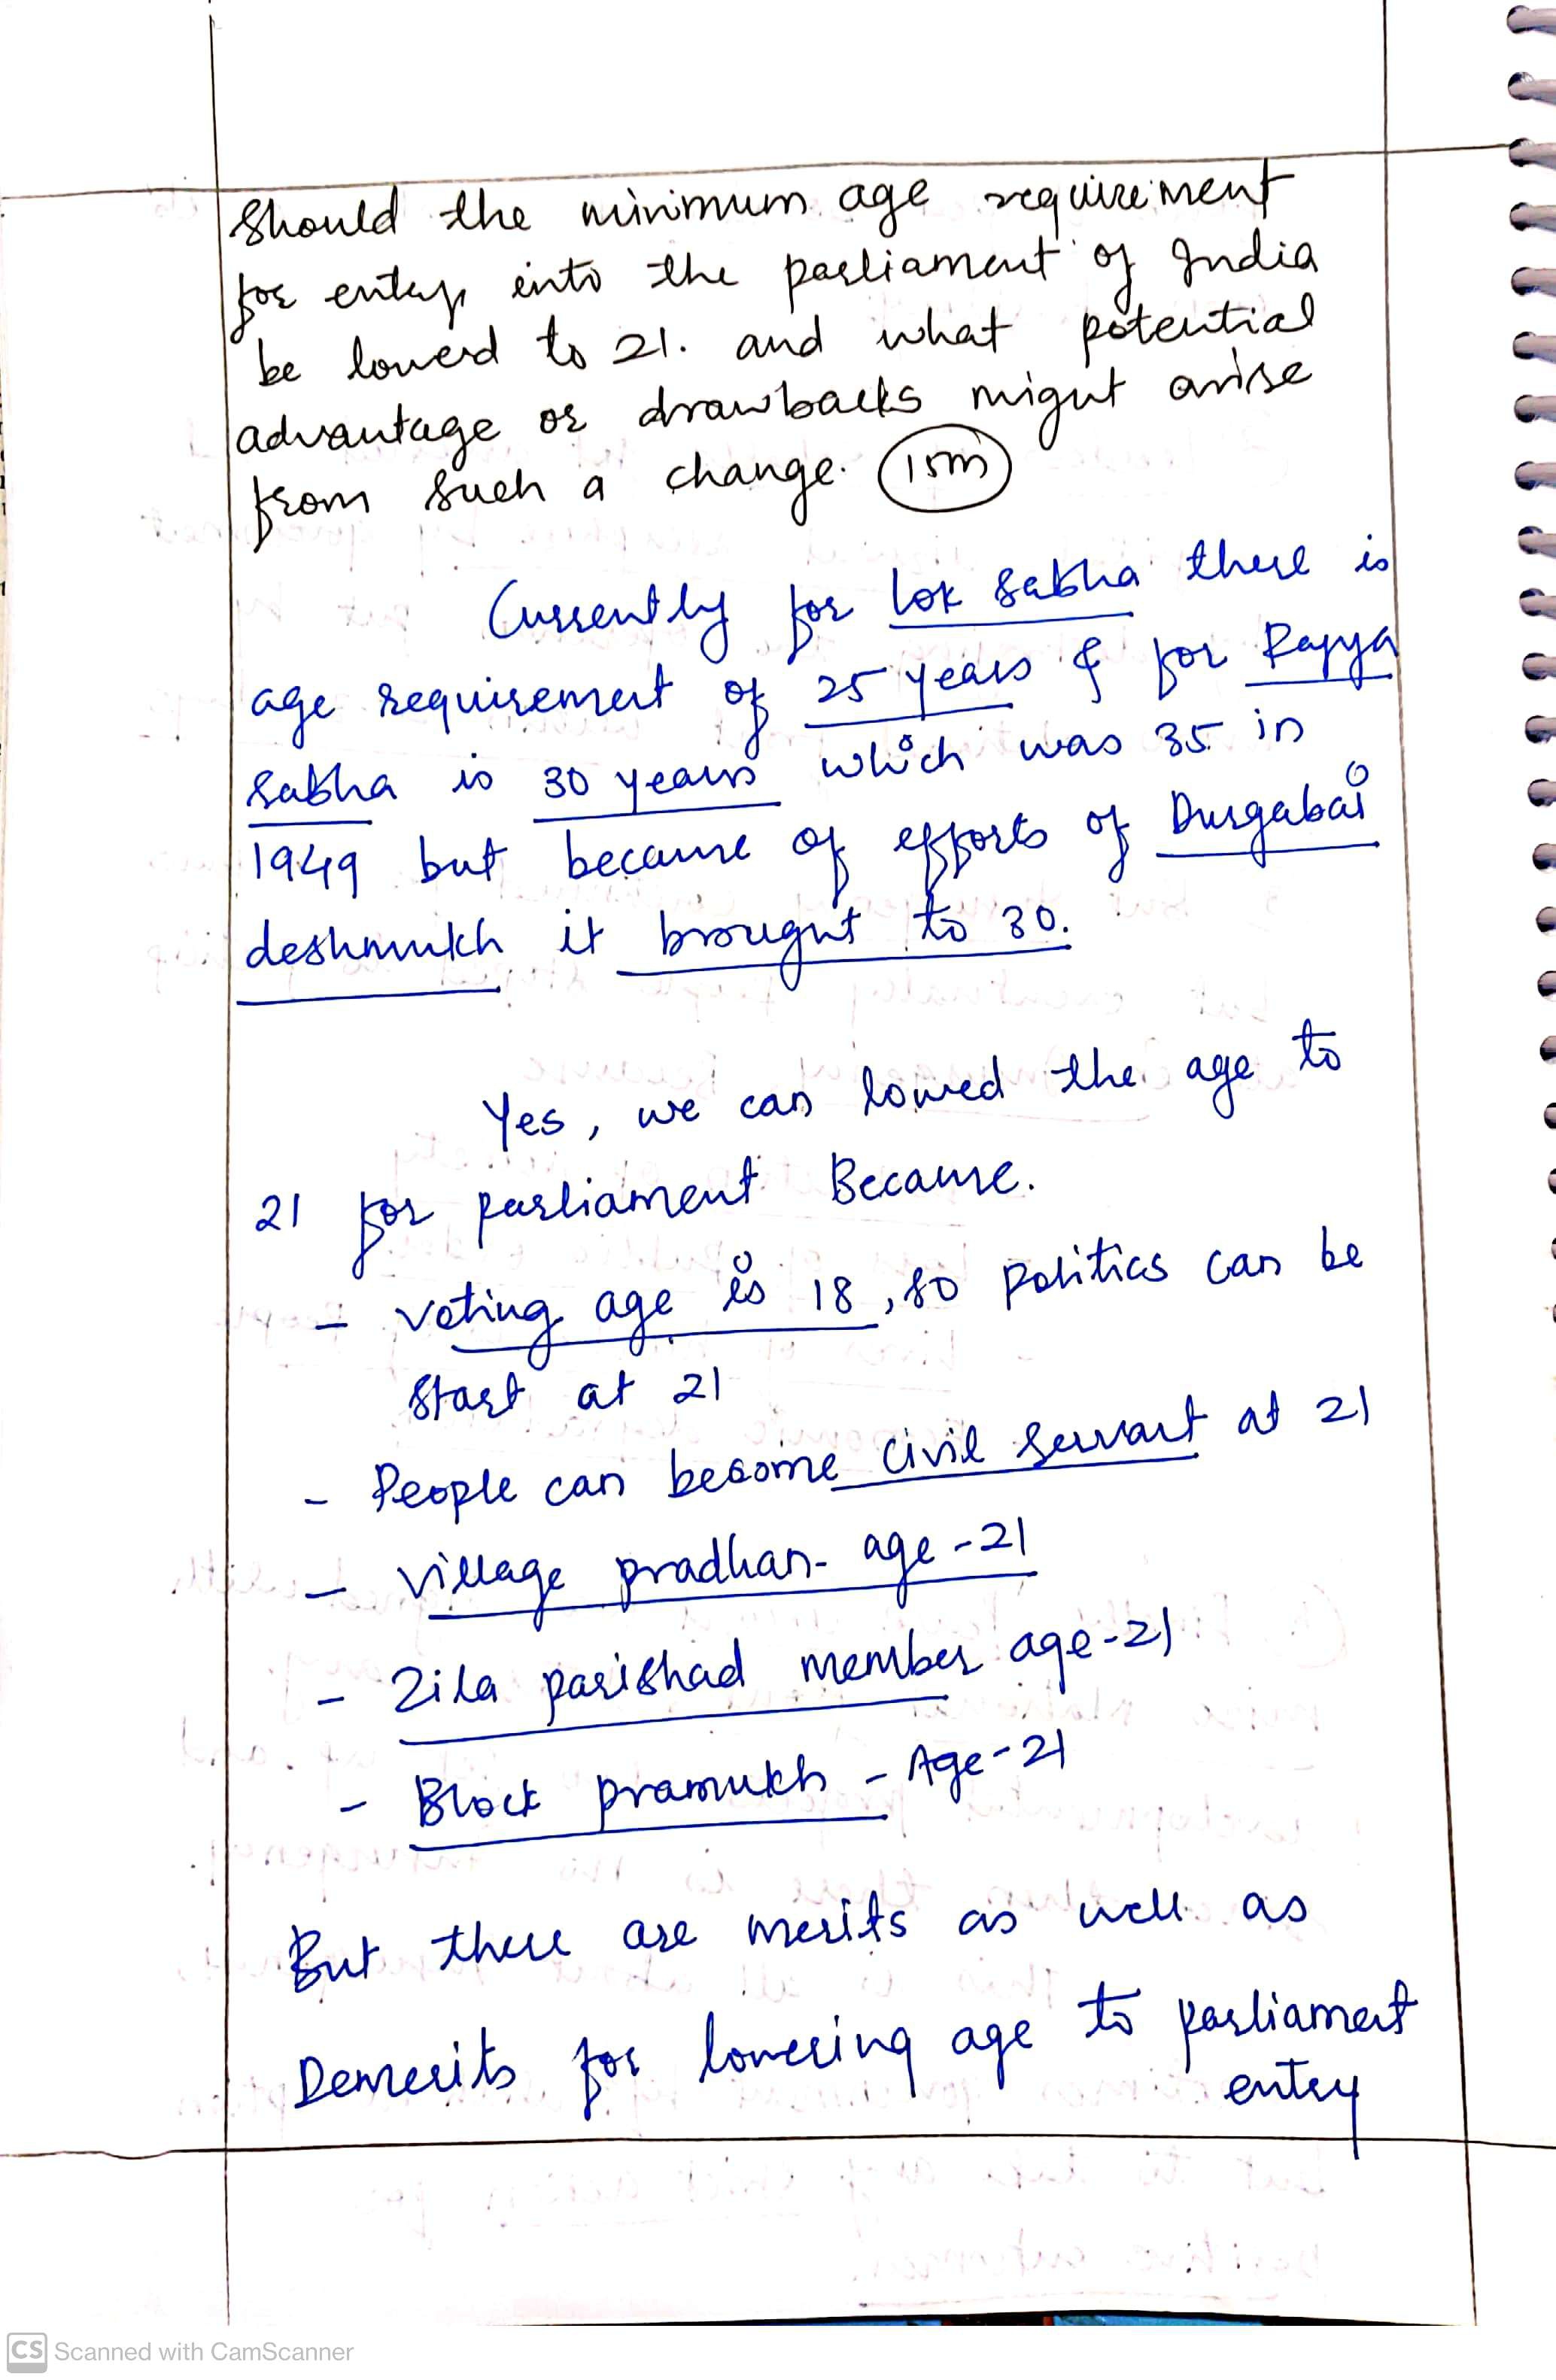 Should the minimum age requirement
for entry into the parliament of India
be lowerd to 21. and what potential
advantage or drawbacks might arise
from such a change. 15m
Currently for lok sabha there is
age requirement of 25 years & for Rajya
sabha is 30 years which was 35 in
1949 but because of efforts of Durgabai
deshmukh it brought to 30.
Yes, we can lowed the age to
21 for parliament Because.
- voting age is 18, so politics can be
start at 21
- People can become civil servant at 21
- village pradhan - age - 21
- Zila parishad member age - 21
- Block pramukh - Age - 21
But there are merits as well as
Demerits for lowering age to parliament
entry
CS Scanned with CamScanner